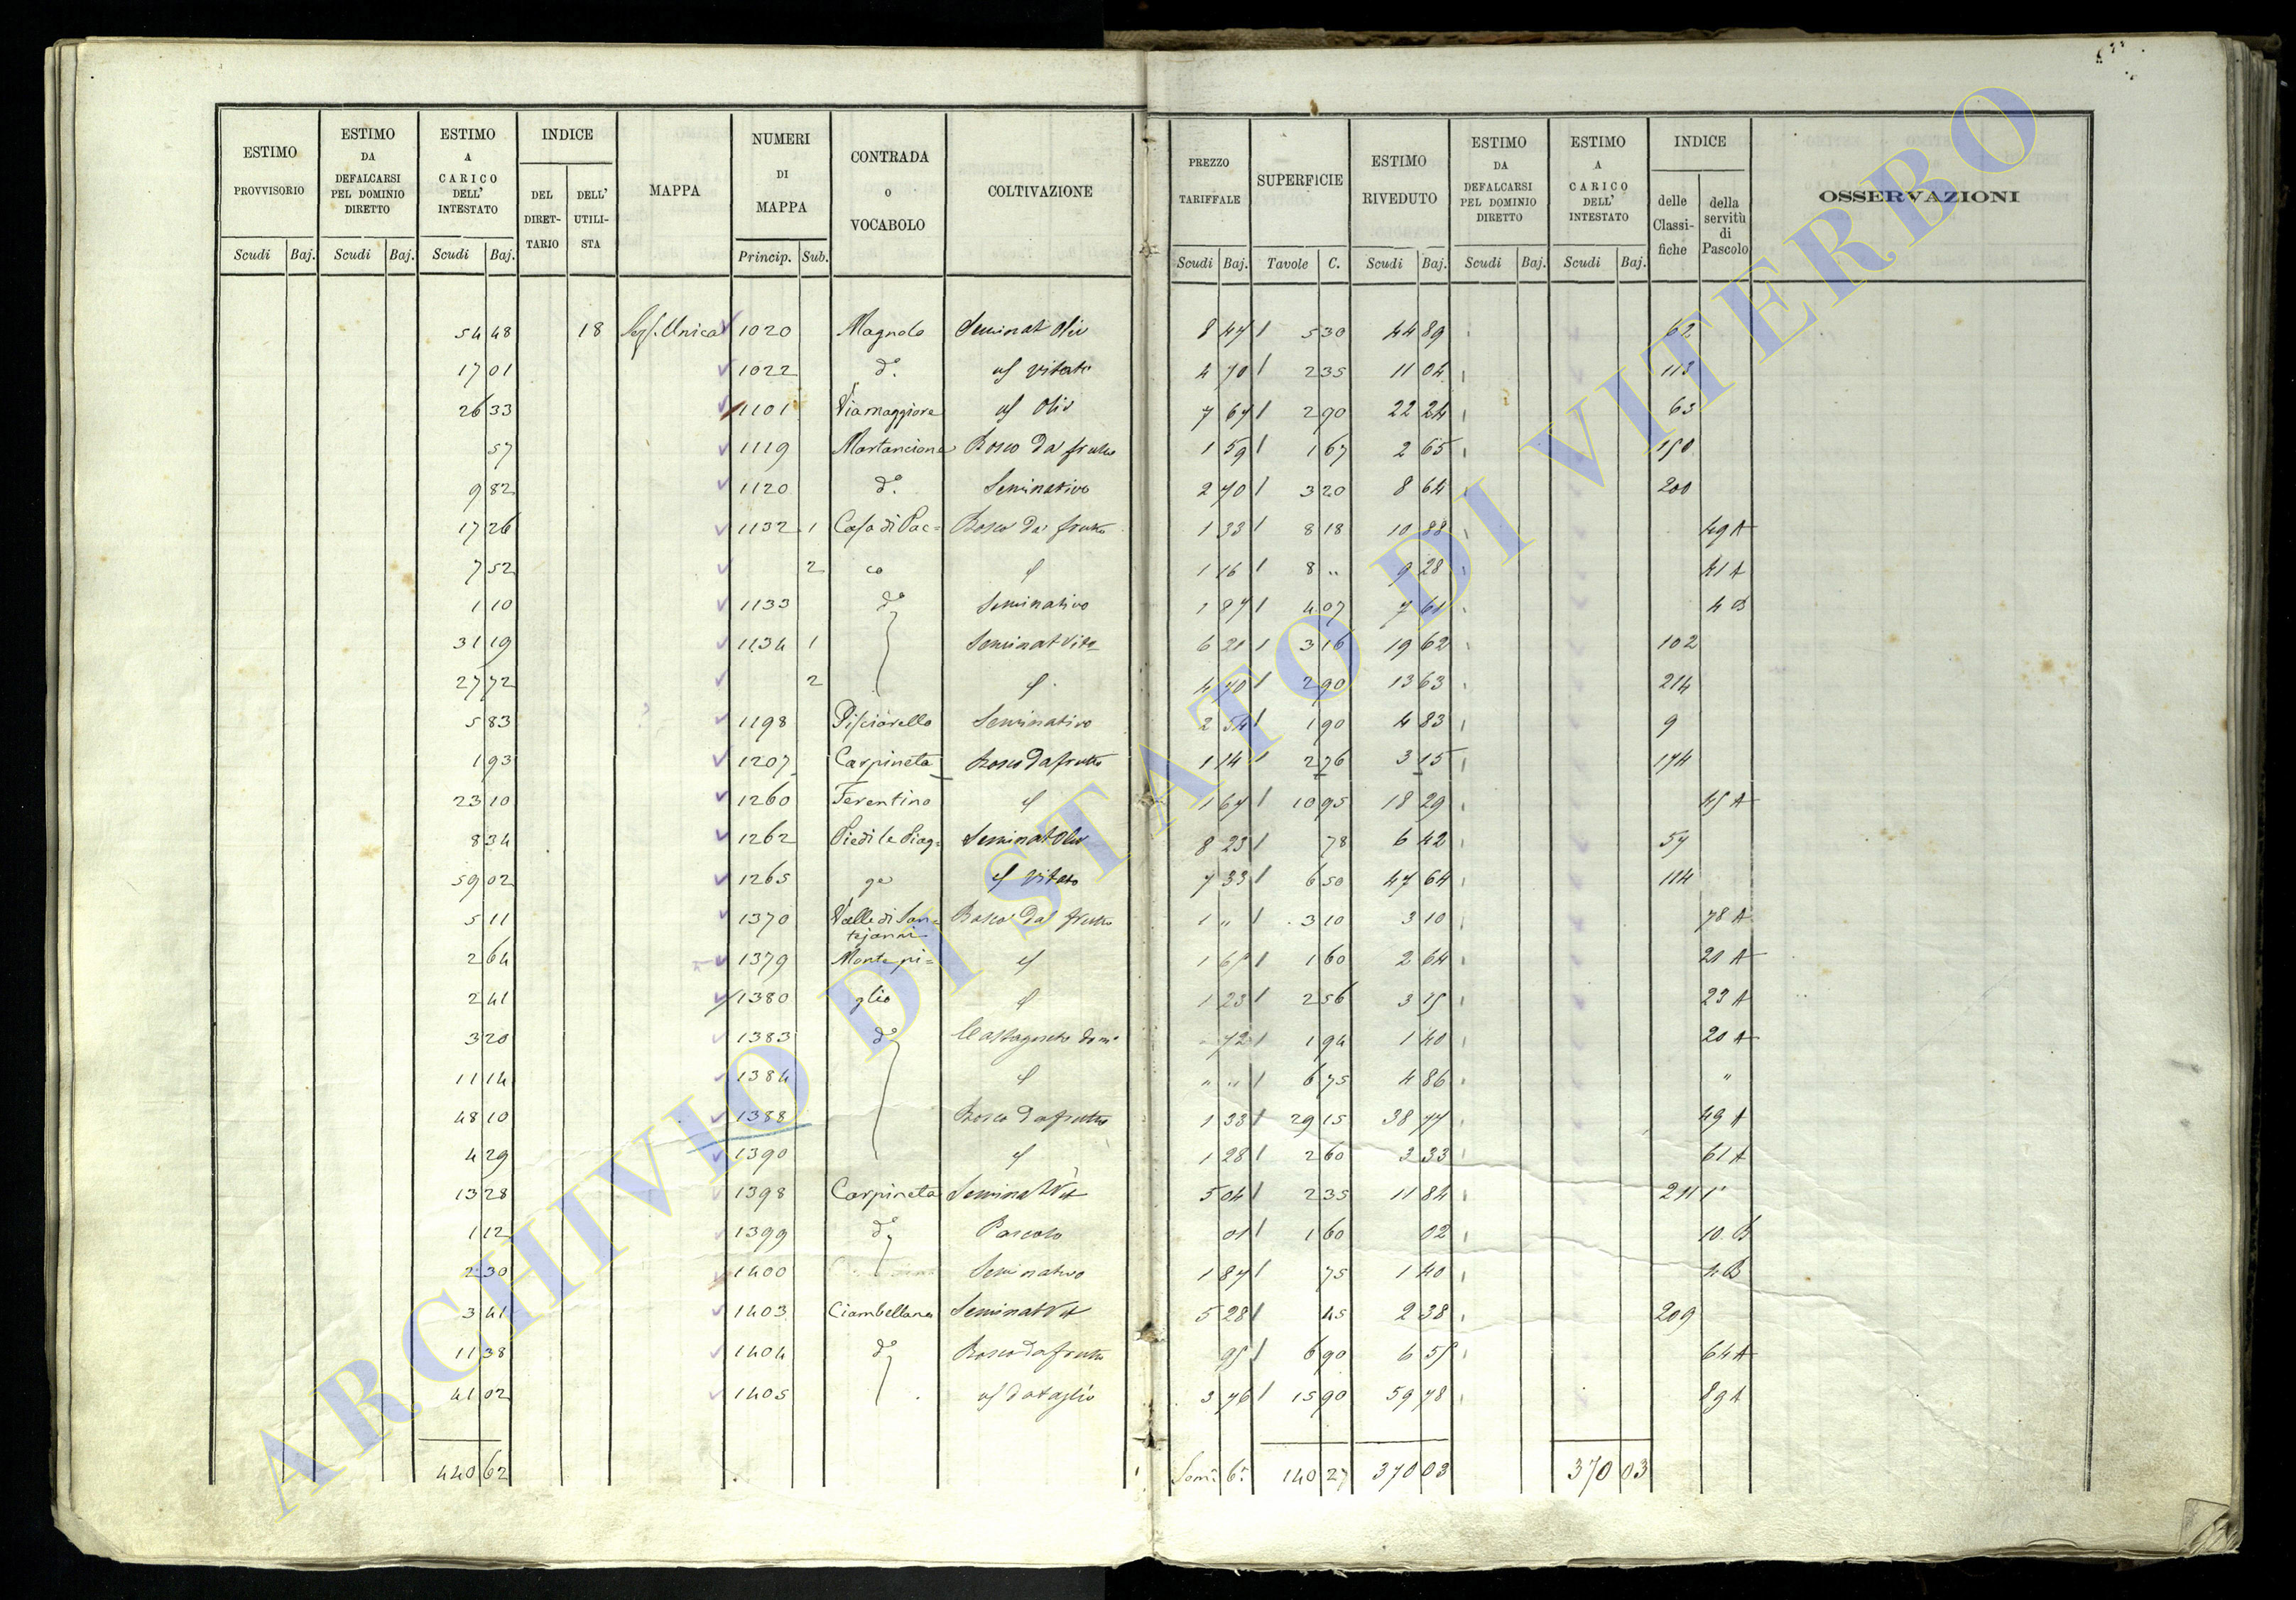 ESTIMO PROVVISORIO Scudi Baj.
ESTIMO DA DEFALCARSI PEL DOMINIO DIRETTO Scudi Baj.
ESTIMO A CARICO DELL' INTESTATO Scudi Baj.
INDICE DEL DIRET-TARIO DELL' UTILI-STA
MAPPA
NUMERI DI MAPPA Princip. Sub.
CONTRADA o VOCABOLO
COLTIVAZIONE
PREZZO TARIFFALE Scudi Baj.
SUPERFICIE Tavole C.
ESTIMO RIVEDUTO Scudi Baj.
ESTIMO DA DEFALCARSI PEL DOMINIO DIRETTO Scudi Baj.
ESTIMO A CARICO DELL' INTESTATO Scudi Baj.
INDICE delle Classi-fiche della servitù di Pascolo
OSSERVAZIONI
54 48 18 Unica 1020 Magnolo Seminat Oliv 8 47 5 30 44 89 62
17 01 1022 d.° vitato 4 70 2 35 11 04 113
26 33 1101 Via maggiore Oliv 7 67 2 90 22 24 63
57 1119 Martancione Bosco da frutto 1 59 1 67 2 65 150
9 82 1120 d.° Seminativo 2 70 3 20 8 64 200
17 26 1132 1 Casa di Pac= Bosco da frutto 1 33 8 18 10 88 49 A
7 52 2 co 1 16 8 " 9 28 41 A
1 10 1133 d.° Seminativo 1 87 4 07 7 61 4 B
31 19 1134 1 Seminat Vita 6 21 3 16 19 62 102
27 72 2 4 70 2 90 13 63 214
5 83 1198 Pisciarello Seminativo 2 54 1 90 4 83 9
1 93 1207 Carpineta Bosco da frutto 1 14 2 76 3 15 174
23 10 1260 Ferentino 1 67 10 95 18 29 45 A
8 34 1262 Piedi le Piag= Seminat Oliv 8 23 78 6 42 57
59 02 1265 ge Vitato 7 33 6 50 47 64 114
5 11 1370 Valle di San= Bosco da frutto 1 " 3 10 3 10 78 A
tejanni
2 64 1379 Monte pi= 1 65 1 60 2 64 21 A
2 41 1380 glio 1 23 2 56 3 15 23 A
3 20 1383 d.° Castagneto dom.° 72 1 94 1 40 20 A
11 14 1384 " " 6 75 4 86 "
48 10 1388 Bosco da frutto 1 33 29 15 38 77 49 A
4 29 1390 1 28 2 60 3 33 61 A
13 28 1398 Carpineta Seminat Vit 5 04 2 35 11 84 211
1 12 1399 d.° Pascolo 01 1 60 02 10 B
2 30 1400 Seminativo 1 87 75 1 40 4 B
3 41 1403 Ciambellana Seminat Vit 5 28 45 2 38 209
11 38 1404 d.° Bosco da frutto 95 6 90 6 55 64 A
41 02 1405 da taglio 3 76 15 90 59 78 89 A
440 62 140 27 370 03 370 03
ARCHIVIO DI STATO DI VITERBO